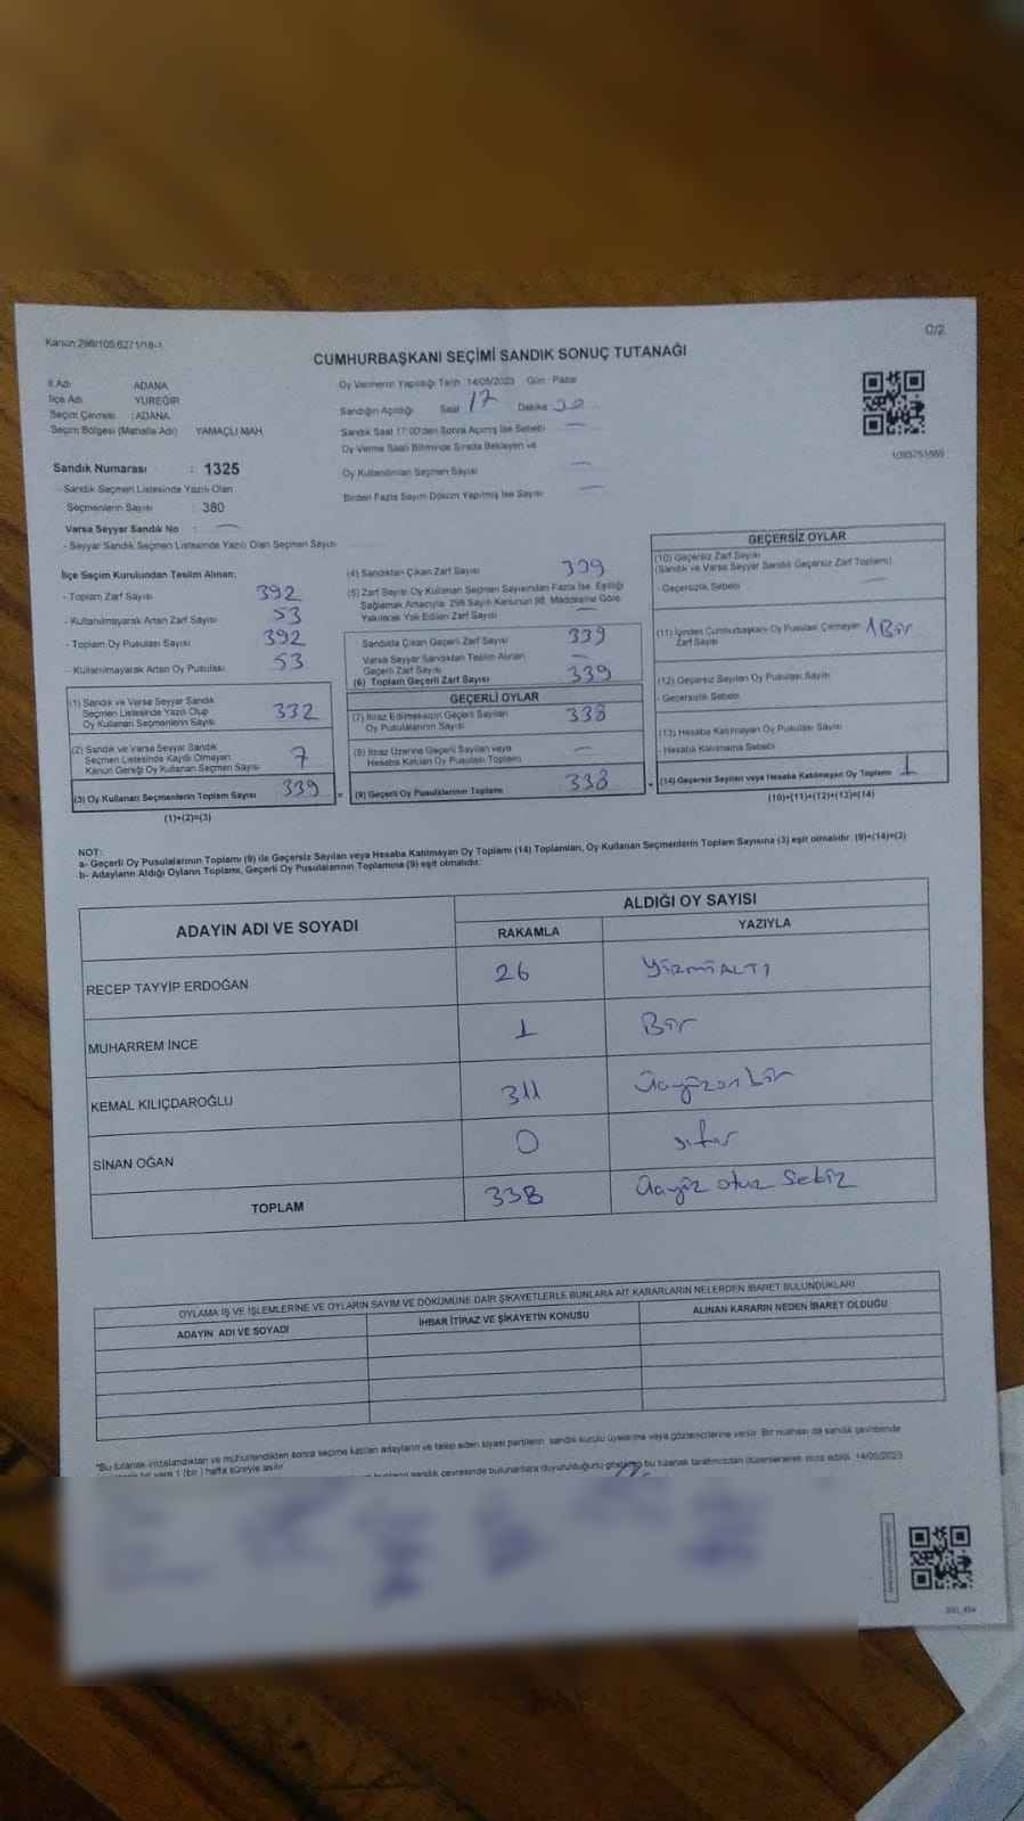 Kanun:298/105;6271/18-1
C/2
CUMHURBAŞKANI SEÇİMİ SANDIK SONUÇ TUTANAĞI
İl Adı ADANA
İlçe Adı YÜREĞİR
Seçim Çevresi : ADANA
Seçim Bölgesi (Mahalle Adı) YAMAÇLI MAH.
Sandık Numarası : 1325
- Sandık Seçmen Listesinde Yazılı Olan
Seçmenlerin Sayısı : 380
Varsa Seyyar Sandık No : —
- Seyyar Sandık Seçmen Listesinde Yazılı Olan Seçmen Sayısı
Oy Vermenin Yapıldığı Tarih :14/05/2023 Gün : Pazar
Sandığın Açıldığı Saat 17 Dakika
Sandık Saat 17:00'den Sonra Açılmış İse Sebebi —
Oy Verme Saati Bitiminde Sırada Bekleyen ve
Oy Kullandırılan Seçmen Sayısı —
Birden Fazla Sayım Döküm Yapılmış İse Sayısı —
İlçe Seçim Kurulundan Teslim Alınan;
- Toplam Zarf Sayısı 392
- Kullanılmayarak Artan Zarf Sayısı 53
- Toplam Oy Pusulası Sayısı 392
- Kullanılmayarak Artan Oy Pusulası 53
(1) Sandık ve Varsa Seyyar Sandık
Seçmen Listesinde Yazılı Olup
Oy Kullanan Seçmenlerin Sayısı 332
(2) Sandık ve Varsa Seyyar Sandık
Seçmen Listesinde Kayıtlı Olmayan
Kanun Gereği Oy Kullanan Seçmen Sayısı 7
(3) Oy Kullanan Seçmenlerin Toplam Sayısı 339
(1)+(2)=(3)
(4) Sandıktan Çıkan Zarf Sayısı 339
(5) Zarf Sayısı Oy Kullanan Seçmen Sayısından Fazla İse, Eşitliği
Sağlamak Amacıyla, 298 Sayılı Kanunun 98. Maddesine Göre
Yakılarak Yok Edilen Zarf Sayısı —
Sandıkta Çıkan Geçerli Zarf Sayısı 339
Varsa Seyyar Sandıktan Teslim Alınan
Geçerli Zarf Sayısı —
(6) Toplam Geçerli Zarf Sayısı 339
GEÇERLİ OYLAR
(7) İtiraz Edilmeksizin Geçerli Sayılan
Oy Pusulalarının Sayısı 338
(8) İtiraz Üzerine Geçerli Sayılan veya
Hesaba Katılan Oy Pusulası Toplamı —
(9) Geçerli Oy Pusulalarının Toplamı 338
GEÇERSİZ OYLAR
(10) Geçersiz Zarf Sayısı
(Sandık ve Varsa Seyyar Sandık Geçersiz Zarf Toplamı)
- Geçersizlik Sebebi —
(11) İçinden Cumhurbaşkanı Oy Pusulası Çıkmayan
Zarf Sayısı 1 Bir
(12) Geçersiz Sayılan Oy Pusulası Sayısı
- Geçersizlik Sebebi
(13) Hesaba Katılmayan Oy Pusulası Sayısı
- Hesaba Katılmama Sebebi
(14) Geçersiz Sayılan veya Hesaba Katılmayan Oy Toplamı 1
(10)+(11)+(12)+(13)=(14)
NOT:
a- Geçerli Oy Pusulalarının Toplamı (9) ile Geçersiz Sayılan veya Hesaba Katılmayan Oy Toplamı (14) Toplamları, Oy Kullanan Seçmenlerin Toplam Sayısına (3) eşit olmalıdır. (9)+(14)=(3)
b- Adayların Aldığı Oyların Toplamı, Geçerli Oy Pusulalarının Toplamına (9) eşit olmalıdır.
ADAYIN ADI VE SOYADI
ALDIĞI OY SAYISI
RAKAMLA YAZIYLA
RECEP TAYYİP ERDOĞAN 26 YirmiALTI
MUHARREM İNCE 1 Bir
KEMAL KILIÇDAROĞLU 311 Üçyüzonbir
SİNAN OĞAN 0 sıfır
TOPLAM 338 Üçyüz otuz Sekiz
OYLAMA İŞ VE İŞLEMLERİNE VE OYLARIN SAYIM VE DÖKÜMÜNE DAİR ŞİKAYETLERLE BUNLARA AİT KARARLARIN NELERDEN İBARET BULUNDUKLARI
ADAYIN ADI VE SOYADI İHBAR İTİRAZ VE ŞİKAYETİN KONUSU ALINAN KARARIN NEDEN İBARET OLDUĞU
"Bu tutanak imzalandıktan ve mühürlendikten sonra seçime katılan adayların ve talep eden siyasi partilerin sandık kurulu üyelerine veya gözlemcilerine verilir. Bir nüshası da sandık çevresinde
1 (bir) hafta süreyle asılır. sandık çevresinde bulunanlara duyurulduğunu gösteren bu tutanak tarafımızdan düzenlenerek imza edildi. 14/05/2023